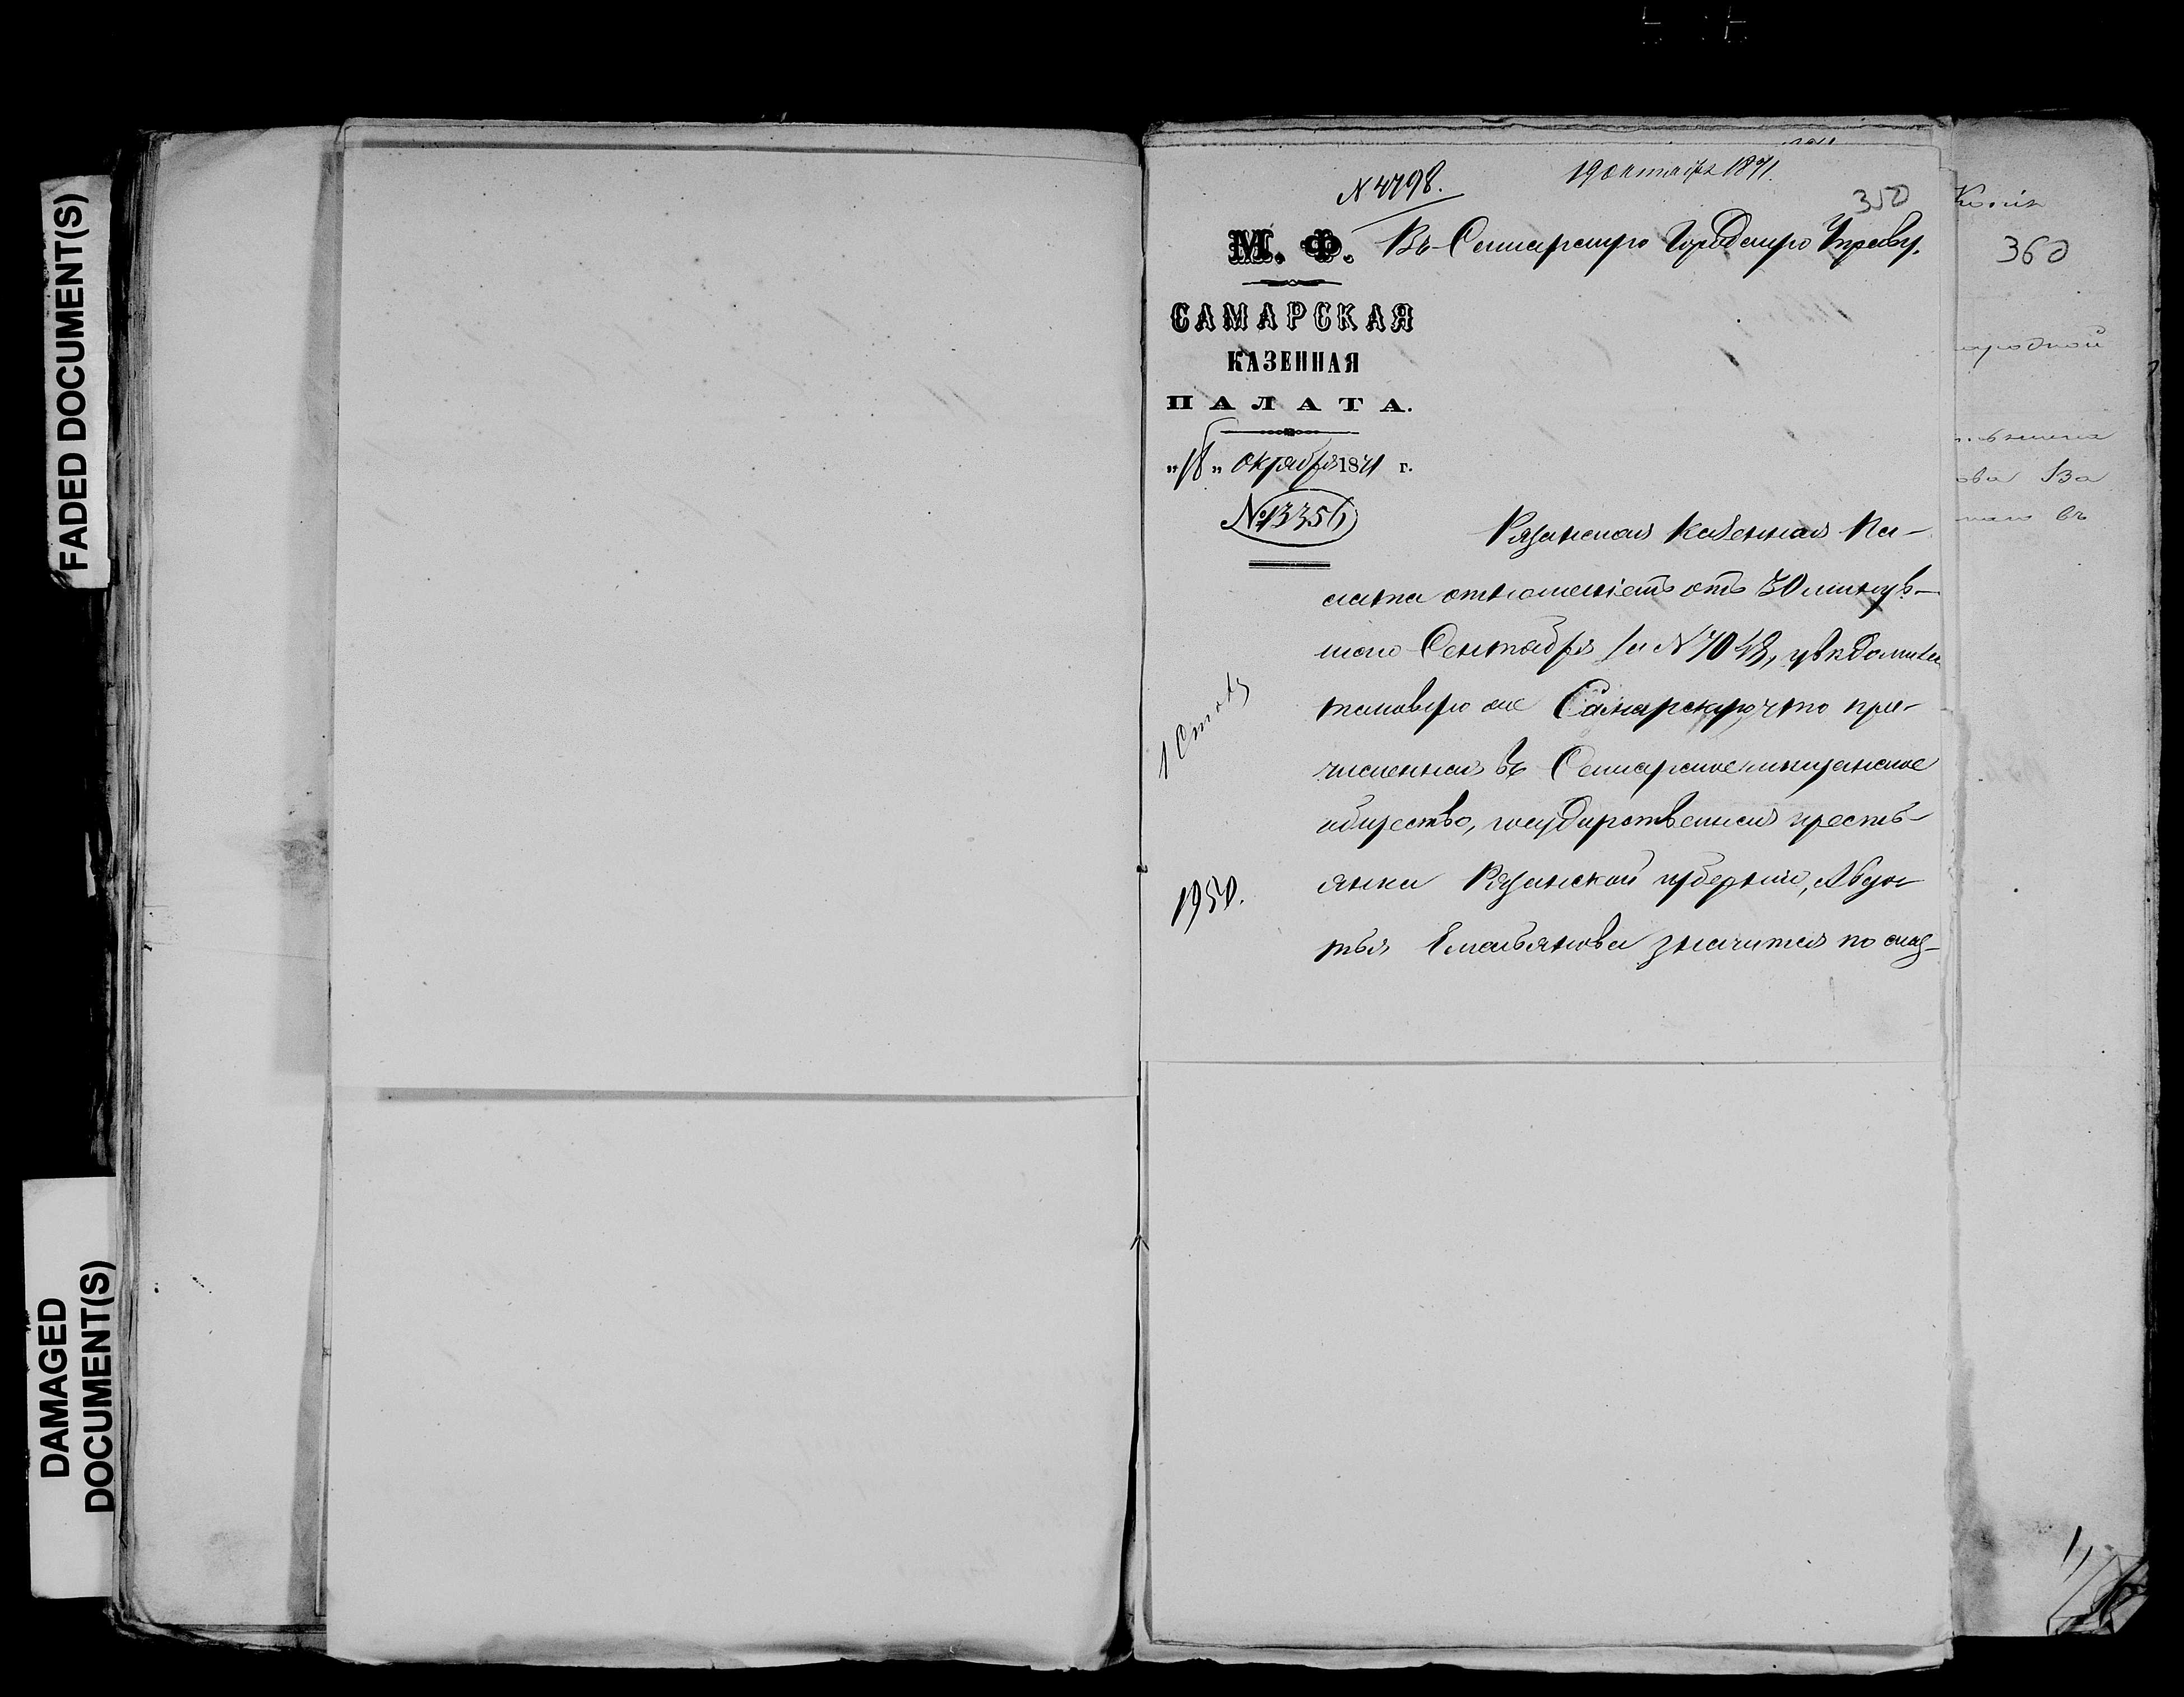 FADED DOCUMENT(S)
DAMAGED
DOCUMENT(S)
19 октября 1871.
N 4798.
350
М. Ф.
Въ Самарскую Городскую Управу.
САМАРСКАЯ
КАЗЕННАЯ
ПАЛАТА.
"18" октября 1871 г.
№ 13356
Рязанская Казенная Па-
лата отношеніемъ отъ 30 минув-
шаго Сентября за N 7048, увѣдомила
таковую же Самарскую, что при-
численная въ Самарское мѣщанское
общество, государственная кресть-
янка Рязанской губерніи, Авдо-
тья Емельянова значится по оклад-
1 Столъ
1950.
Копія
360